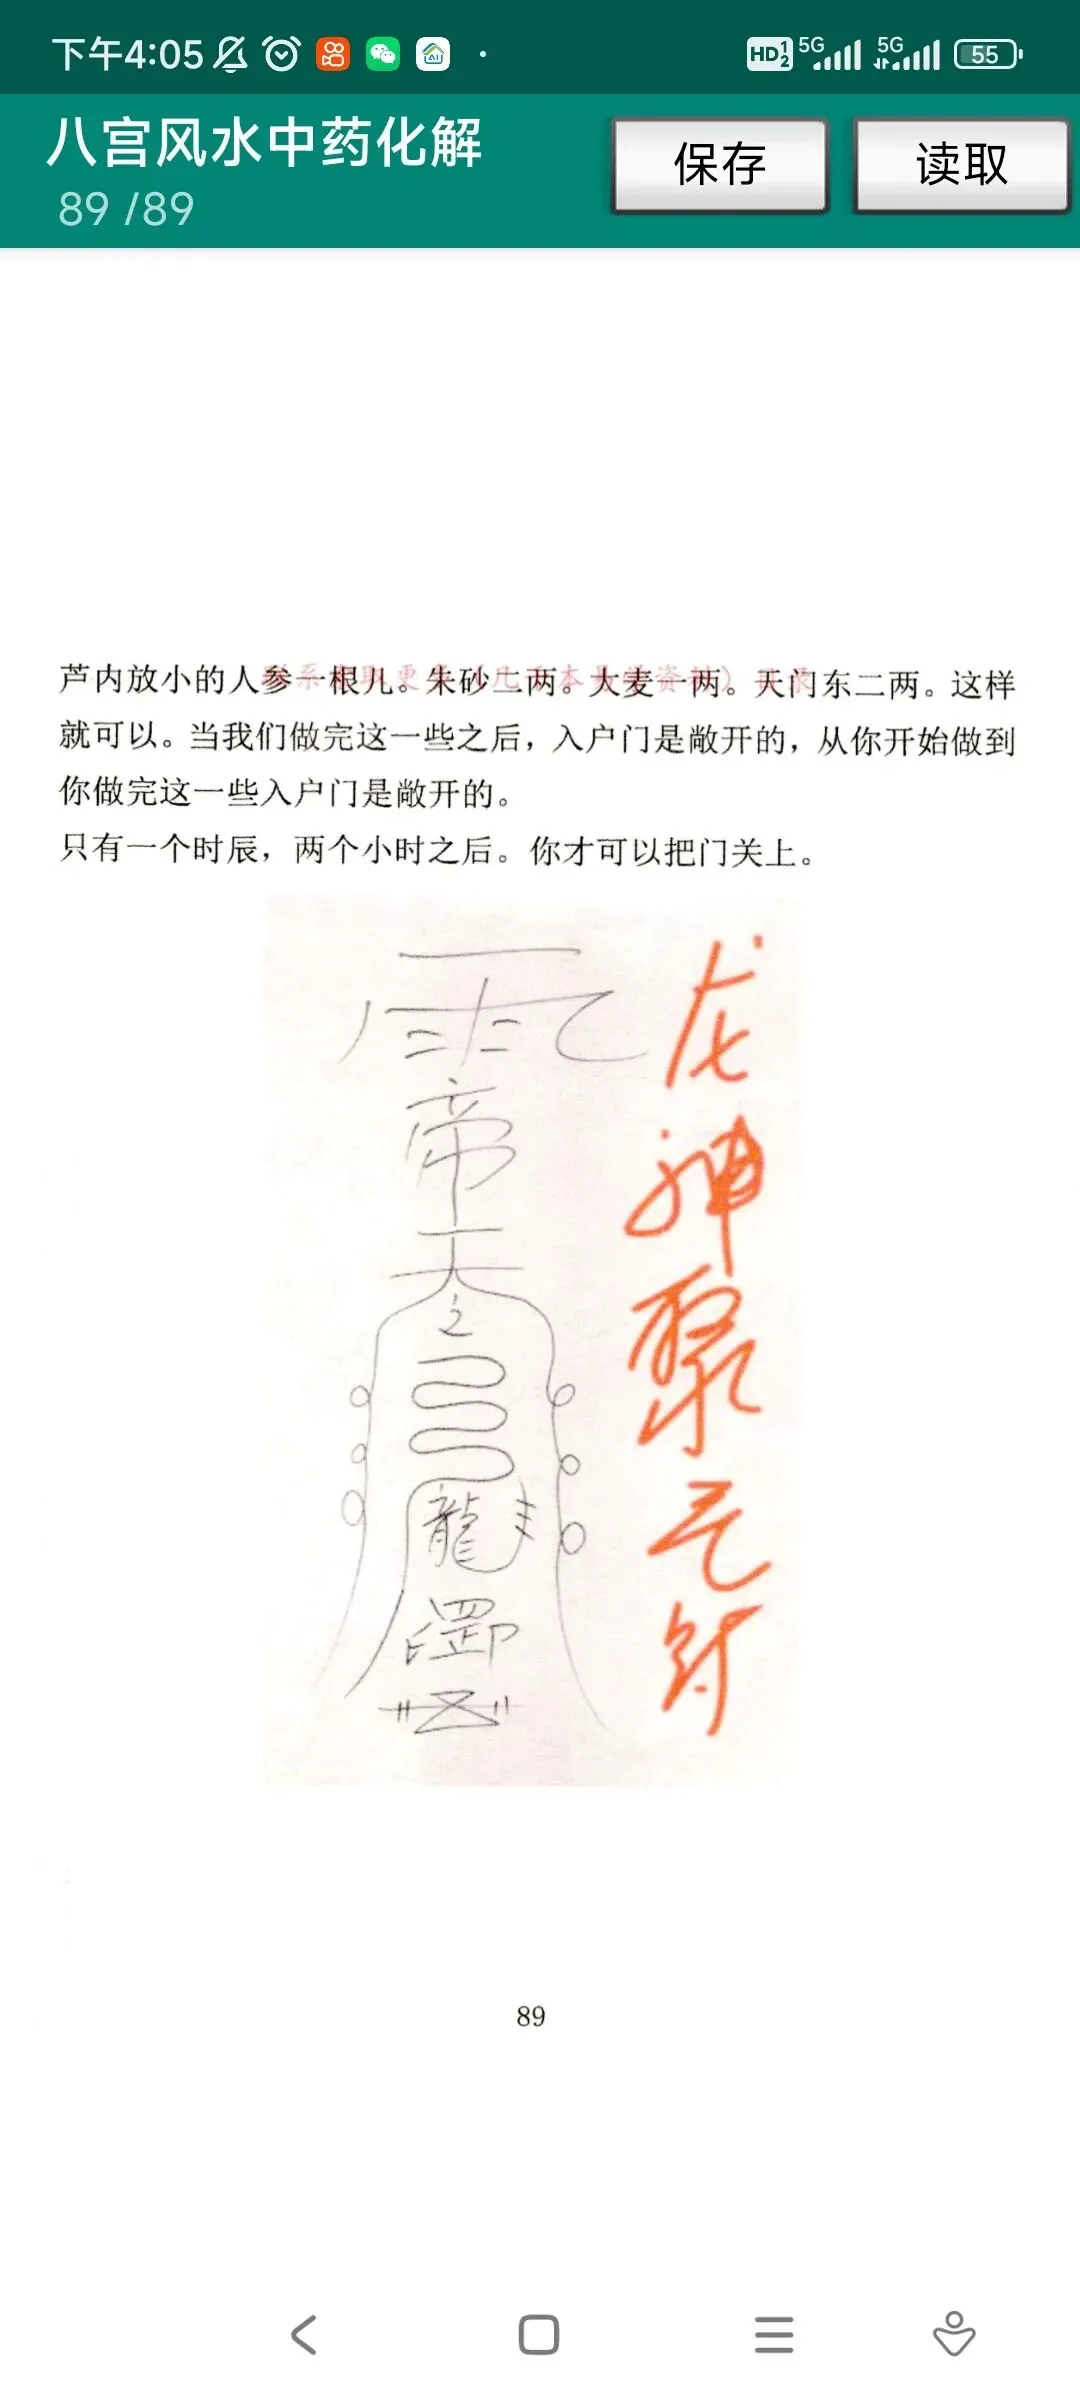 下午4:05
HD 1 2 5G 5G 55
八宫风水中药化解
89 /89
保存
读取
芦内放小的人参一根儿。朱砂二两。大麦一两。天门东二两。这样
就可以。当我们做完这一些之后，入户门是敞开的，从你开始做到
你做完这一些入户门是敞开的。
只有一个时辰，两个小时之后。你才可以把门关上。
雨
帝
天
之
龍
罡
龙神聚气符
89